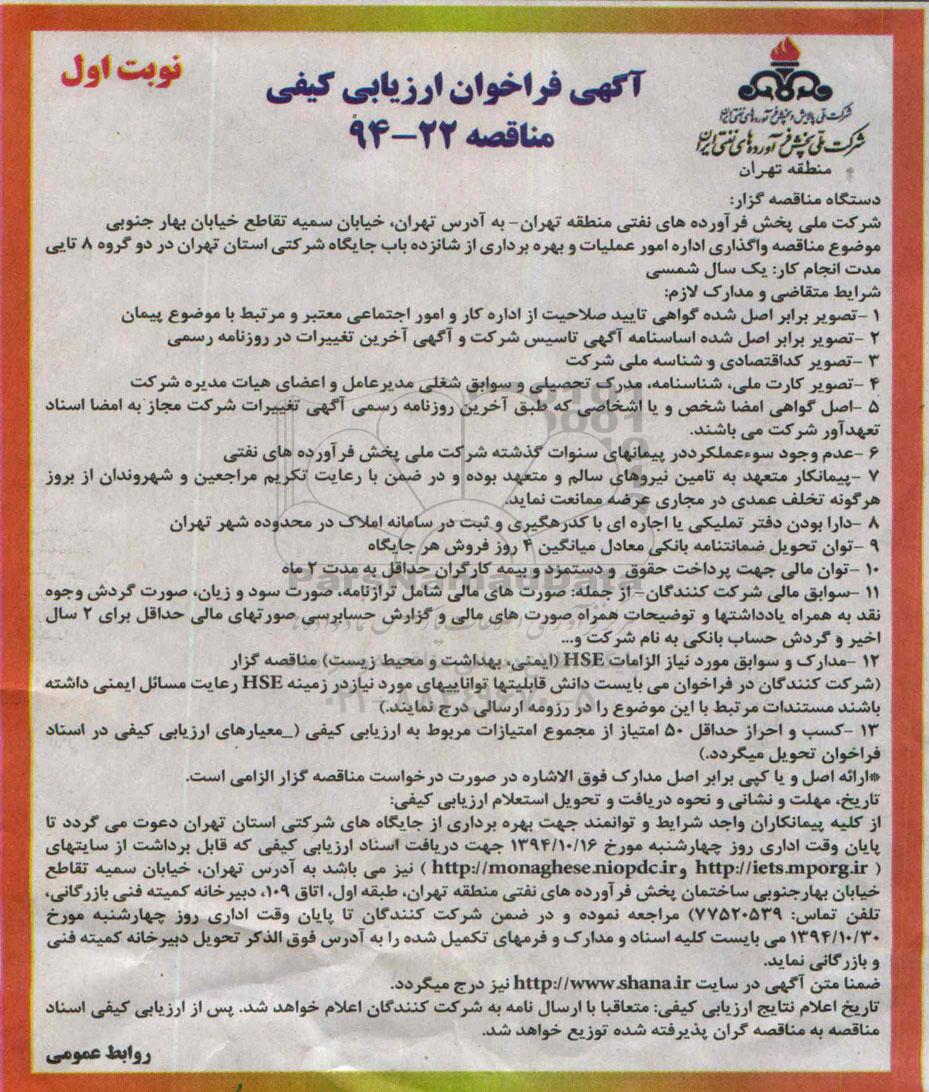 نوبت اول
آگهی فراخوان ارزیابی کیفی
مناقصه ۲۲-۹۴
شرکت ملی پالایش و پخش فرآورده‌های نفتی ایران
شرکت ملی پخش فرآورده‌های نفتی ایران
منطقه تهران
دستگاه مناقصه گزار:
شرکت ملی پخش فرآورده های نفتی منطقه تهران- به آدرس تهران، خیابان سمیه تقاطع خیابان بهار جنوبی
موضوع مناقصه واگذاری اداره امور عملیات و بهره برداری از شانزده باب جایگاه شرکتی استان تهران در دو گروه ۸ تایی
مدت انجام کار: یک سال شمسی
شرایط متقاضی و مدارک لازم:
۱ -تصویر برابر اصل شده گواهی تایید صلاحیت از اداره کار و امور اجتماعی معتبر و مرتبط با موضوع پیمان
۲ -تصویر برابر اصل شده اساسنامه آگهی تاسیس شرکت و آگهی آخرین تغییرات در روزنامه رسمی
۳ -تصویر کداقتصادی و شناسه ملی شرکت
۴ -تصویر کارت ملی، شناسنامه، مدرک تحصیلی و سوابق شغلی مدیرعامل و اعضای هیات مدیره شرکت
۵ -اصل گواهی امضا شخص و یا اشخاصی که طبق آخرین روزنامه رسمی آگهی تغییرات شرکت مجاز به امضا اسناد
تعهدآور شرکت می باشند.
۶ -عدم وجود سوءعملکرددر پیمانهای سنوات گذشته شرکت ملی پخش فرآورده های نفتی
۷ -پیمانکار متعهد به تامین نیروهای سالم و متعهد بوده و در ضمن با رعایت تکریم مراجعین و شهروندان از بروز
هرگونه تخلف عمدی در مجاری عرضه ممانعت نماید.
۸ -دارا بودن دفتر تملیکی یا اجاره ای با کدرهگیری و ثبت در سامانه املاک در محدوده شهر تهران
۹ -توان تحویل ضمانتنامه بانکی معادل میانگین ۴ روز فروش هر جایگاه
۱۰ -توان مالی جهت پرداخت حقوق و دستمزد و بیمه کارگران حداقل به مدت ۲ ماه
۱۱ -سوابق مالی شرکت کنندگان- از جمله: صورت های مالی شامل ترازنامه، صورت سود و زیان، صورت گردش وجوه
نقد به همراه یادداشتها و توضیحات همراه صورت های مالی و گزارش حسابرسی صورتهای مالی حداقل برای ۲ سال
اخیر و گردش حساب بانکی به نام شرکت و...
۱۲ -مدارک و سوابق مورد نیاز الزامات HSE (ایمنی، بهداشت و محیط زیست) مناقصه گزار
(شرکت کنندگان در فراخوان می بایست دانش قابلیتها تواناییهای مورد نیازدر زمینه HSE رعایت مسائل ایمنی داشته
باشند مستندات مرتبط با این موضوع را در رزومه ارسالی درج نمایند.)
۱۳ -کسب و احراز حداقل ۵۰ امتیاز از مجموع امتیازات مربوط به ارزیابی کیفی (_معیارهای ارزیابی کیفی در اسناد
فراخوان تحویل میگردد.)
*ارائه اصل و یا کپی برابر اصل مدارک فوق الاشاره در صورت درخواست مناقصه گزار الزامی است.
تاریخ، مهلت و نشانی و نحوه دریافت و تحویل استعلام ارزیابی کیفی:
از کلیه پیمانکاران واجد شرایط و توانمند جهت بهره برداری از جایگاه های شرکتی استان تهران دعوت می گردد تا
پایان وقت اداری روز چهارشنبه مورخ ۱۳۹۴/۱۰/۱۶ جهت دریافت اسناد ارزیابی کیفی که قابل برداشت از سایتهای
( http://iets.mporg.ir و http://monaghese.niopdc.ir ) نیز می باشد به آدرس تهران، خیابان سمیه تقاطع
خیابان بهارجنوبی ساختمان پخش فرآورده های نفتی منطقه تهران، طبقه اول، اتاق ۱۰۹، دبیرخانه کمیته فنی بازرگانی،
تلفن تماس: ۷۷۵۲۰۵۳۹) مراجعه نموده و در ضمن شرکت کنندگان تا پایان وقت اداری روز چهارشنبه مورخ
۱۳۹۴/۱۰/۳۰ می بایست کلیه اسناد و مدارک و فرمهای تکمیل شده را به آدرس فوق الذکر تحویل دبیرخانه کمیته فنی
و بازرگانی نماید.
ضمنا متن آگهی در سایت http://www.shana.ir نیز درج میگردد.
تاریخ اعلام نتایج ارزیابی کیفی: متعاقبا با ارسال نامه به شرکت کنندگان اعلام خواهد شد. پس از ارزیابی کیفی اسناد
مناقصه به مناقصه گران پذیرفته شده توزیع خواهد شد.
روابط عمومی
ParsNamadData